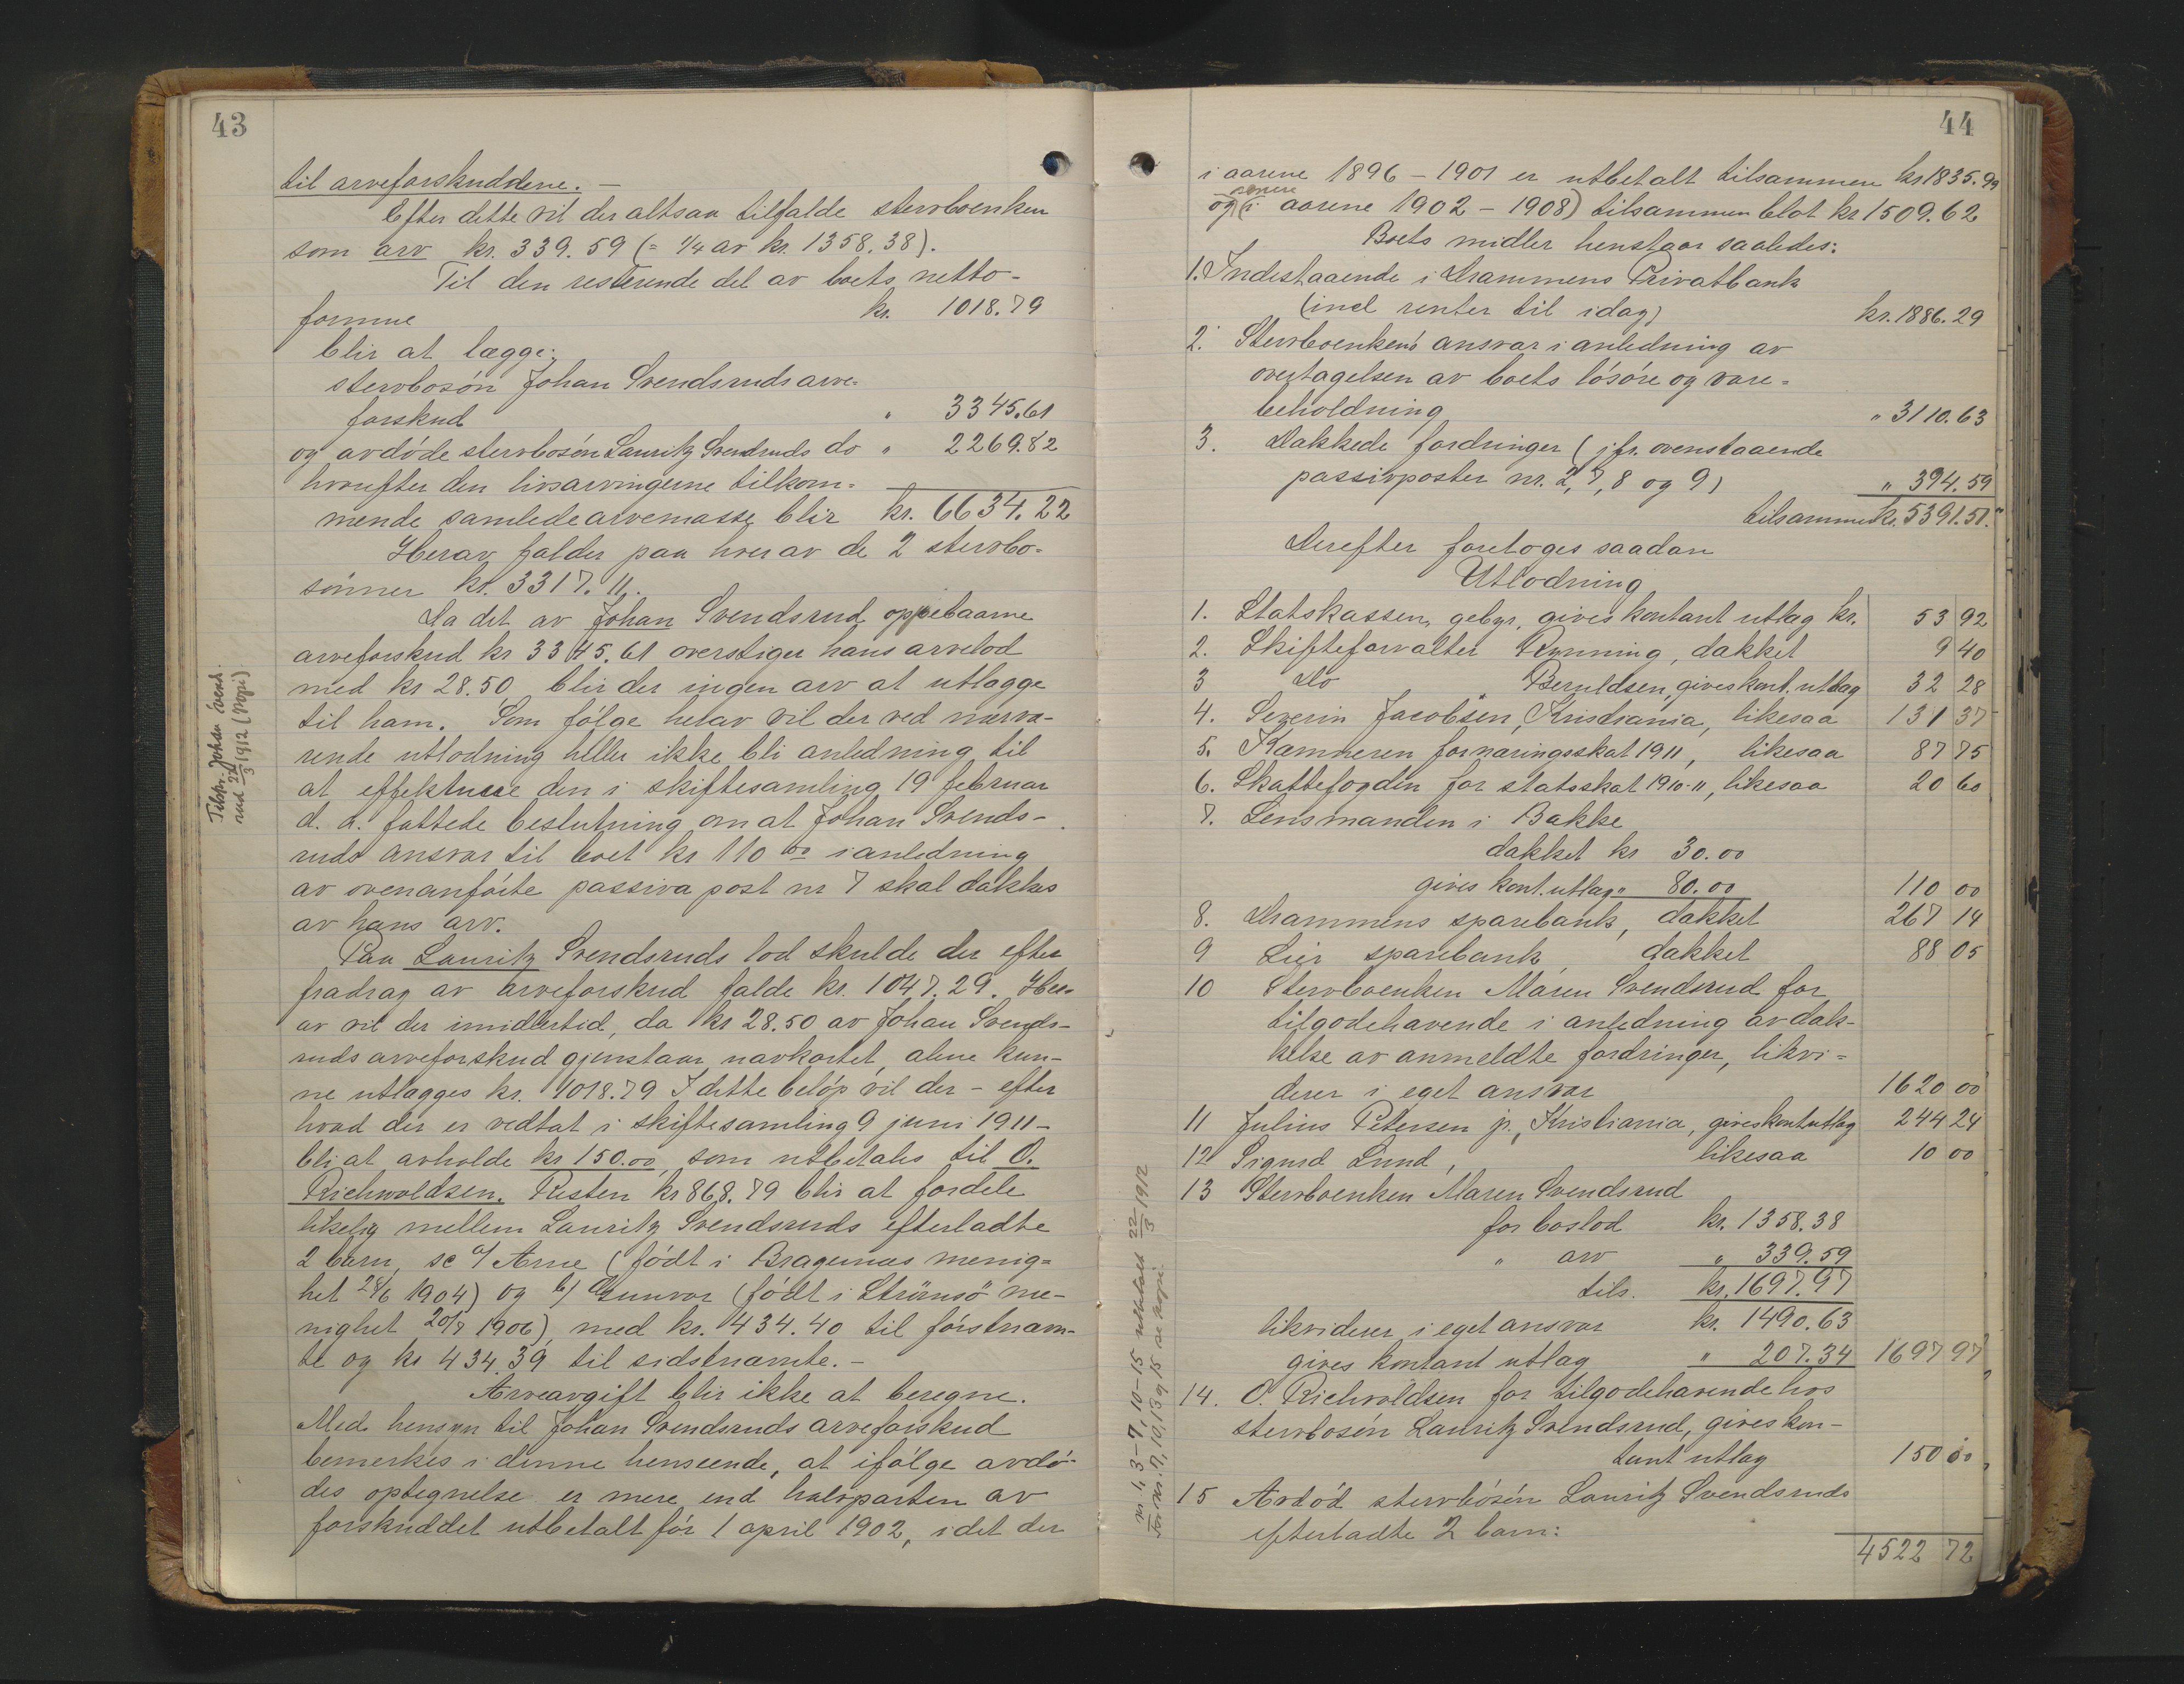 43
til arveforskuddene. —
Efter dette vil der altsaa tilfalde stervboenken
som arv kr. 339.59 (= 1/4 av kr. 1358.38).
Til den resterende del av boets netto-
formue kr. 1018.79
blir at lægge:
stervbosön Johan Svendsruds arve-
forskud " 3345.61
og avdöde stervbosön Lauritz Svendsruds do " 2269.82
hvorefter den livsarvingerne tilkom-
mende samlede arvemasse blir kr. 6634.22
Herav falder paa hver av de 2 stervbo-
sönner kr. 3317.11.
Da det av Johan Svendsrud oppebaarne
arveforskud kr 3345.61 overstiger hans arvelod
med kr 28.50 blir der ingen arv at utlægge
til ham. Som fölge herav vil der ved nærvæ-
rende utlodning heller ikke bli anledning til
at effektuere den i skiftesamling 19 februar
d. a. fattede beslutning om at Johan Svends-
ruds ansvar til boet kr 110.00 i anledning
av ovenanförte passiva post nr 7 skal dækkes
av hans arv.
Paa Lauritz Svendsruds lod skulde der efter
fradrag av arveforskud falde kr. 1047.29. Her-
av vil der imidlertid, da kr 28.50 av Johan Svends-
ruds arveforskud gjenstaar uavkortet, alene kun-
ne utlægges kr. 1018.79 I dette belöp vil der – efter
hvad der er vedtat i skiftesamling 9 juni 1911 –
bli at avholde kr 150.00, som utbetales til O.
Richwoldsen. Resten kr 868.79 blir at fordele
likelig mellem Lauritz Svendsruds efterladte
2 barn, sc a/ Arne (födt i Bragernæs menig-
het 28/6 1904) og b/ Gunvor (födt i Strömsö me-
nighet 20/7 1906), med kr. 434.40 til förstnævn-
te og kr 434.39 til sidstnævnte. –
Arveavgift blir ikke at beregne.
Med hensyn til Johan Svendsruds arveforskud
bemerkes i denne henseende, at ifölge avdö-
des optegnelse er mere end halvparten av
forskuddet utbetalt för 1 april 1902, idet der
Tilskr. Johan Svends-
rud 22/3 1912 (Kopi)
44
i aarene 1896 – 1901 er utbetalt tilsammen kr 1835.99
og (i senere aarene 1902 – 1908) tilsammen blot kr 1509.62
Boets midler henstaar saaledes:
1. Indestaaende i Drammens Privatbank
(incl renter til idag) kr. 1886.29
2. Stervboenkens ansvar i anledning av
overtagelsen av boets lösöre og vare-
beholdning " 3110.63
3. Dækkede fordringer (jfr. ovenstaaende
passivposter nr. 2, 7, 8 og 9) " 394.59
tilsammen kr. 5391.51.
Derefter foretoges saadan
Utlodning
1. Statskassen, gebyr, gives kontant utlæg kr. 53 92
2. Skifteforvalter Rynning, dækket 9 40
3 Do " Beruldsen, gives kont. utlæg 32 28
4. Sezerin Jacobsen, Kristiania, likesaa 131 37
5. Kæmneren for næringsskat 1911, likesaa 87 75
6. Skattefogden for statsskat 1910-11, likesaa 20 60
7. Lensmanden i Bakke
dækket kr 30.00
gives kont. utlæg " 80.00 110 00
8. Drammens sparebank, dækket 267 14
9 Lier sparebank, dækket 88 05
10 Stervboenken Maren Svendsrud for
tilgodehavende i anledning av dæk-
kelse av anmeldte fordringer, likvi-
derer i eget ansvar 1620 00
11 Julius Petersen jr., Kristiania, gives kont utlæg 244 24
12 Sigurd Lund, likesaa 10 00
13 Stervboenken Maren Svendsrud
for boslod kr. 1358.38
" arv " 339.59
tils. kr. 1697.97
likviderer i eget ansvar kr. 1490.63
gives kontant utlæg " 207.34 1697 97
14. O. Richvoldsen for tilgodehavende hos
stervbosön Lauritz Svendsrud, gives kon-
tant utlæg 150 00
15 Avdöd stervbosön Lauritz Svendsruds
efterladte 2 barn:
4522 72
nr 1, 3-7, 10-15 utbetalt 22/3 1912
For nr. 7, 10, 13 og 15 se kopi.